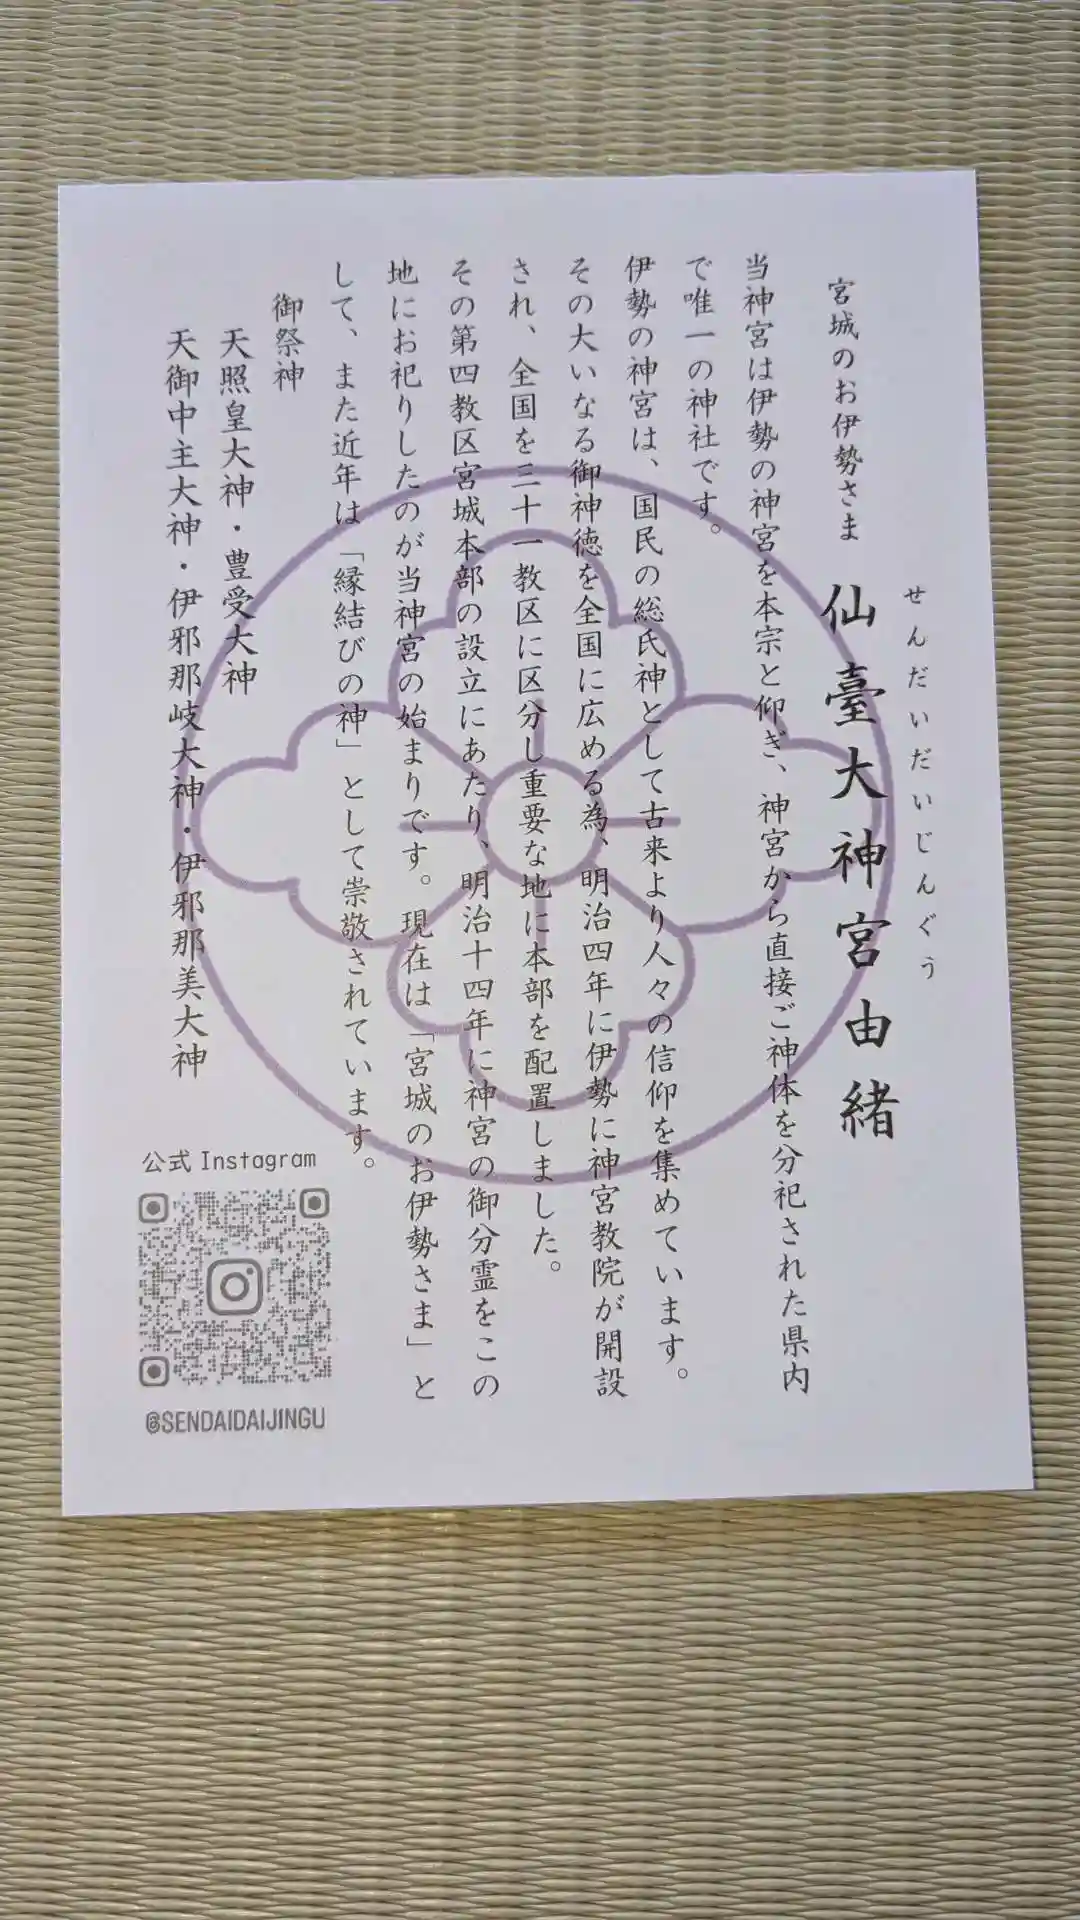 せんだいだいじんぐう
宮城のお伊勢さま 仙臺大神宮由緒
当神宮は伊勢の神宮を本宗と仰ぎ、神宮から直接ご神体を分祀された県内
で唯一の神社です。
伊勢の神宮は、国民の総氏神として古来より人々の信仰を集めています。
その大いなる御神徳を全国に広める為、明治四年に伊勢に神宮教院が開設
され、全国を三十一教区に区分し重要な地に本部を配置しました。
その第四教区宮城本部の設立にあたり、明治十四年に神宮の御分霊をこの
地にお祀りしたのが当神宮の始まりです。現在は「宮城のお伊勢さま」と
して、また近年は「縁結びの神」として崇敬されています。
御祭神
天照皇大神・豊受大神
天御中主大神・伊邪那岐大神・伊邪那美大神
公式 Instagram
@SENDAIDAIJINGU